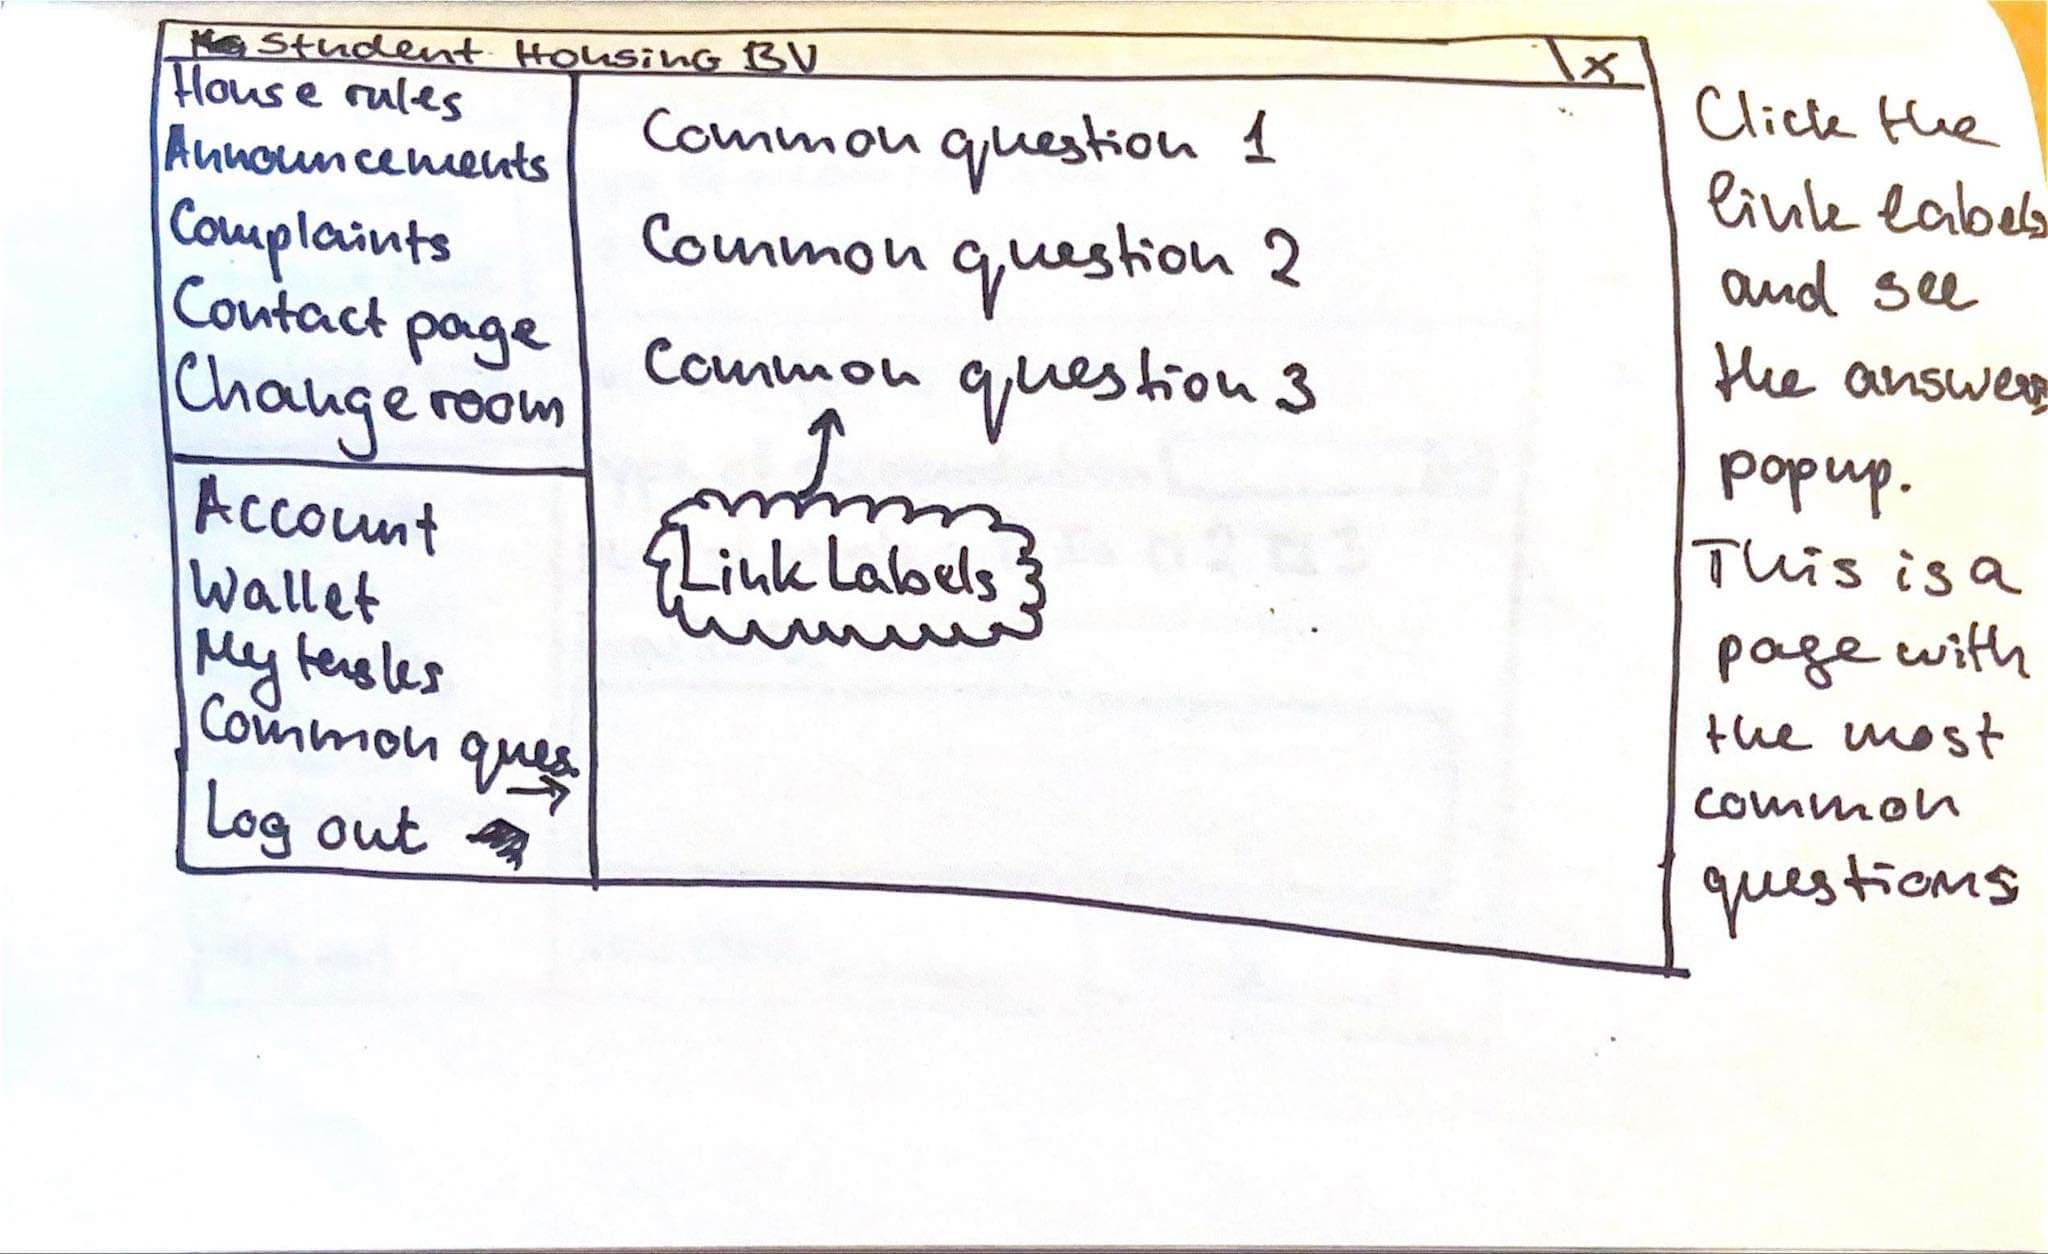 Student Housing BV X
House rules
Announcements
Complaints
Contact page
Change room
Account
Wallet
My tasks
Common ques.
Log out
Common question 1
Common question 2
Common question 3
Link Labels
Click the
link labels
and see
the answers
popup.
This is a
page with
the most
common
questions